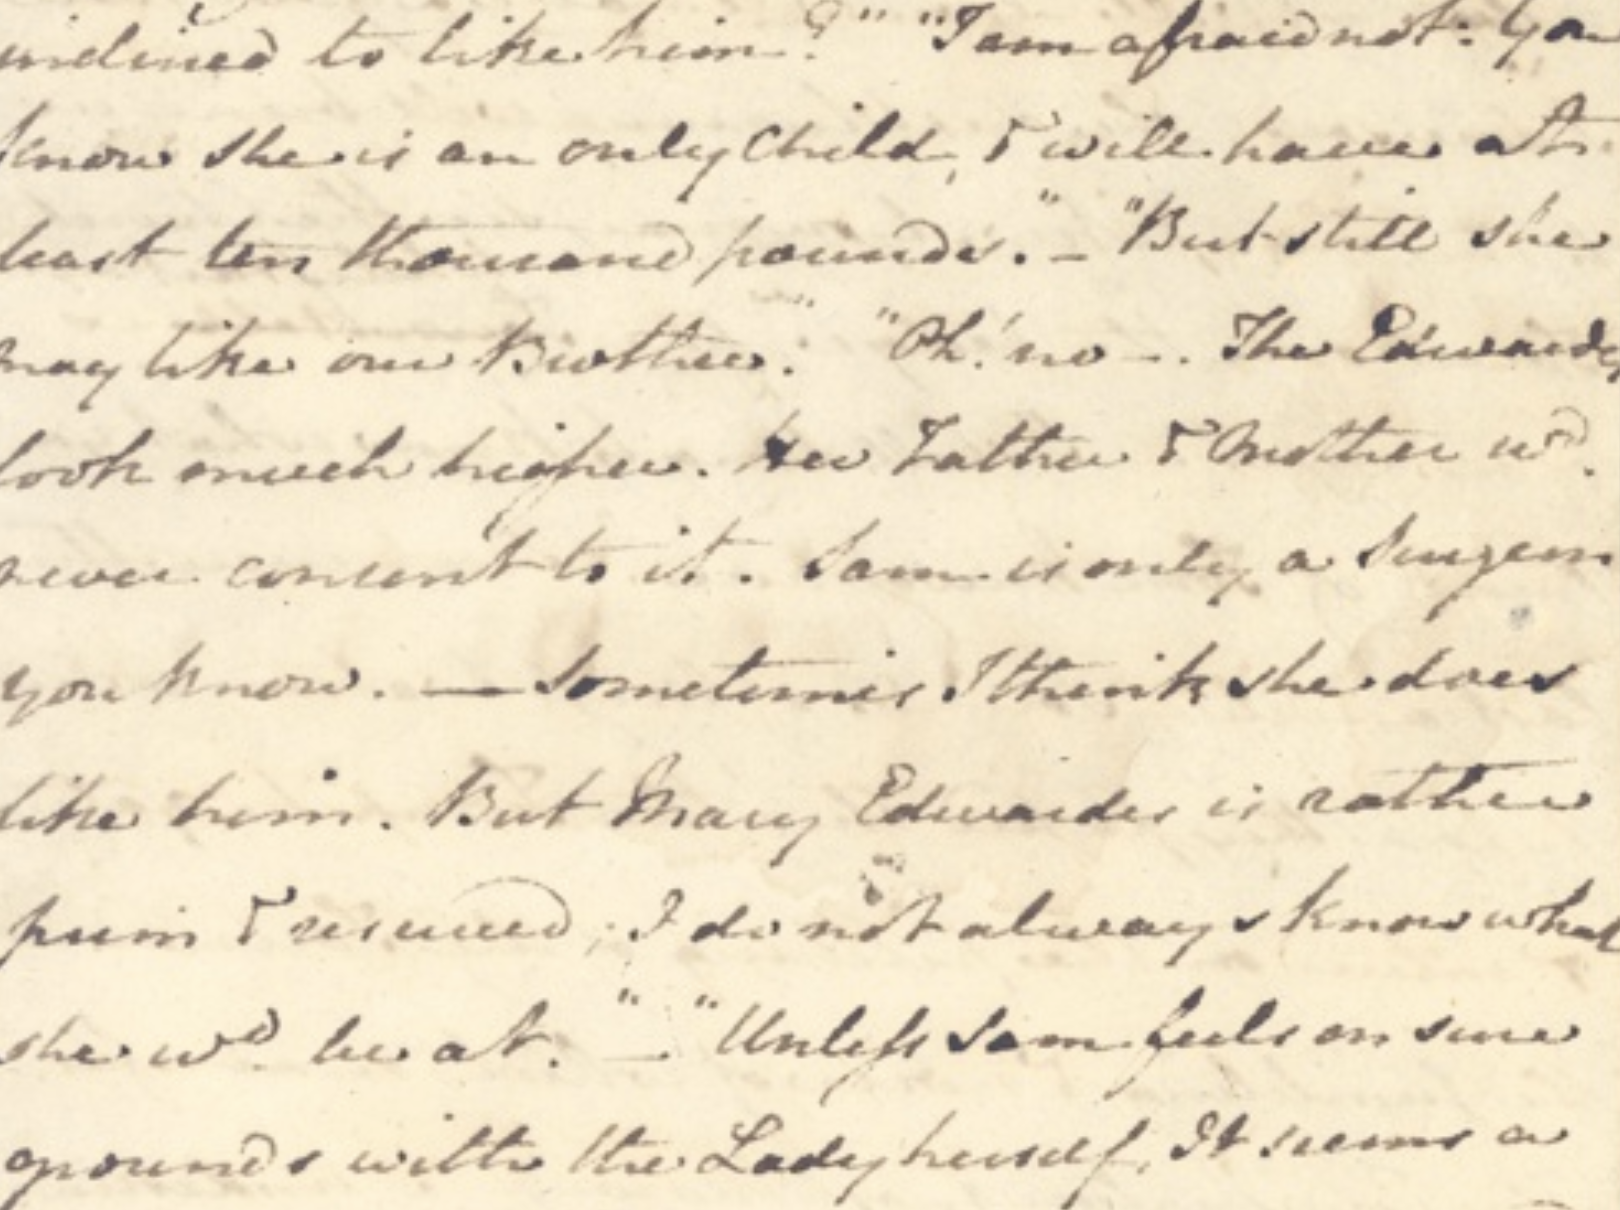 inclined to like him?" "I am afraid not: You
know she is an only Child, & will have at
least ten thousand pounds."– "But still she
may like our Brother." "Oh! no –. The Edwardes
look much higher. Her Father & Mother wd.
never consent to it. Sam is only a Surgeon
you know. — Sometimes I think she does
like him. But Mary Edwardes is rather
prim & reserved; I do not always know what
she wd. be at." – "Unless Sam feels on sure
grounds with the Lady herself, It seems a